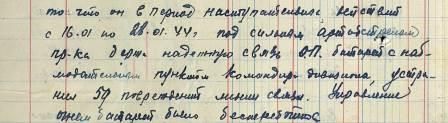 то что он в период наступательных действий
с 16.01 по 28.01.44г под сильным артобстрелом
пр-ка держал надежную связь О.П. батарей с наб-
людательным пунктом командира дивизиона, устра-
нил 50 повреждений линии связи. Управление
огнем батарей было бесперебойно